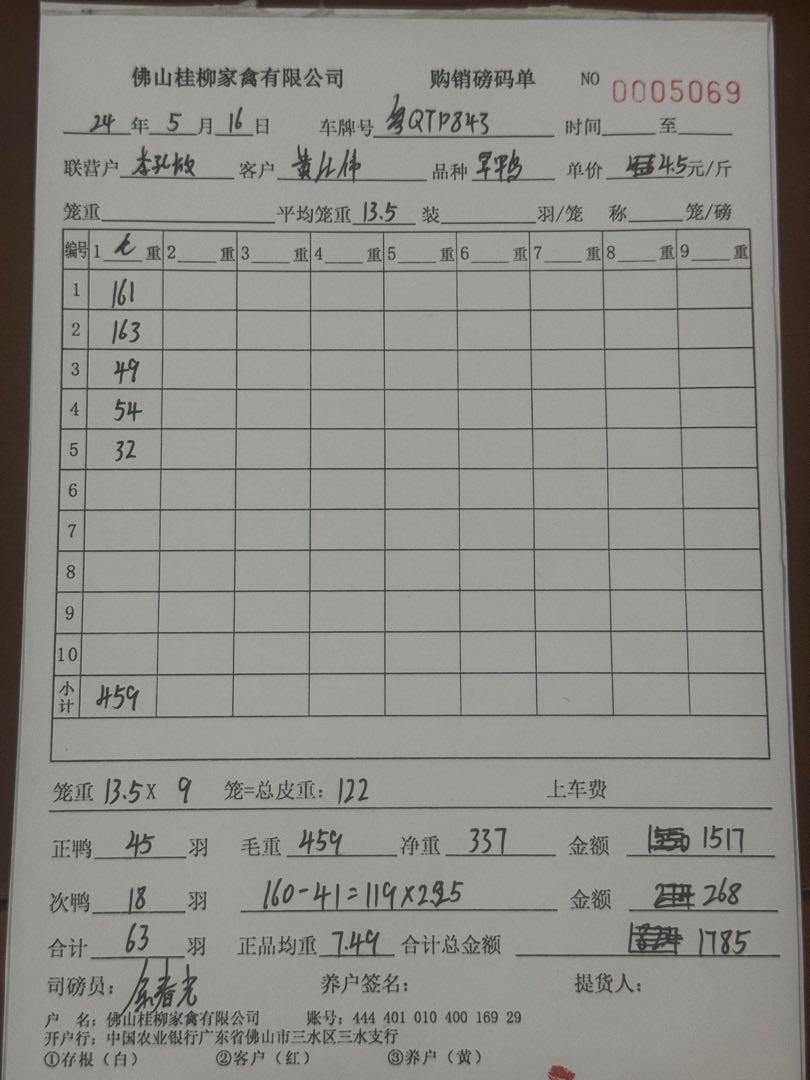 佛山桂柳家禽有限公司 购销磅码单 NO 0005069
24 年 5 月 16 日 车牌号 粤QTP843 时间 至
联营户 客户 黄仕伟 品种 旱鸭 单价 4.5 元/斤
笼重 平均笼重 13.5 装 羽/笼 称 笼/磅
编号 1 毛 重 2 重 3 重 4 重 5 重 6 重 7 重 8 重 9 重
1 161
2 163
3 49
4 54
5 32
6
7
8
9
10
小计 459
笼重 13.5 X 9 笼=总皮重: 122 上车费
正鸭 45 羽 毛重 459 净重 337 金额 1517
次鸭 18 羽 160-41=119×2.25 金额 268
合计 63 羽 正品均重 7.49 合计总金额 1785
司磅员: 养户签名: 提货人:
户 名: 佛山桂柳家禽有限公司 账号: 444 401 010 400 169 29
开户行: 中国农业银行广东省佛山市三水区三水支行
①存根（白） ②客户（红） ③养户（黄）